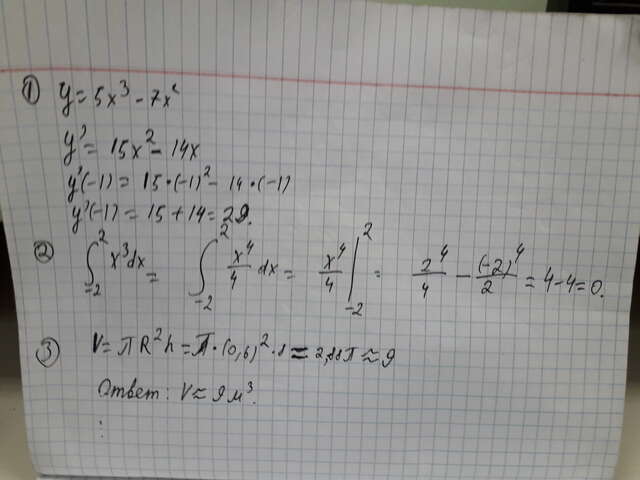 ① y = 5x³ - 7x²
y' = 15x² - 14x
y'(-1) = 15·(-1)² - 14·(-1)
y'(-1) = 15 + 14 = 29.
② ∫₋₂² x³dx = ∫₋₂² x⁴/4 dx = x⁴/4 |₋₂² = 2⁴/4 - (-2)⁴/2 = 4-4=0.
③ V = πR²h = π·(0,6)²·8 = 2,88π ≈ 9
Ответ: V ≈ 9 м³.
⋮